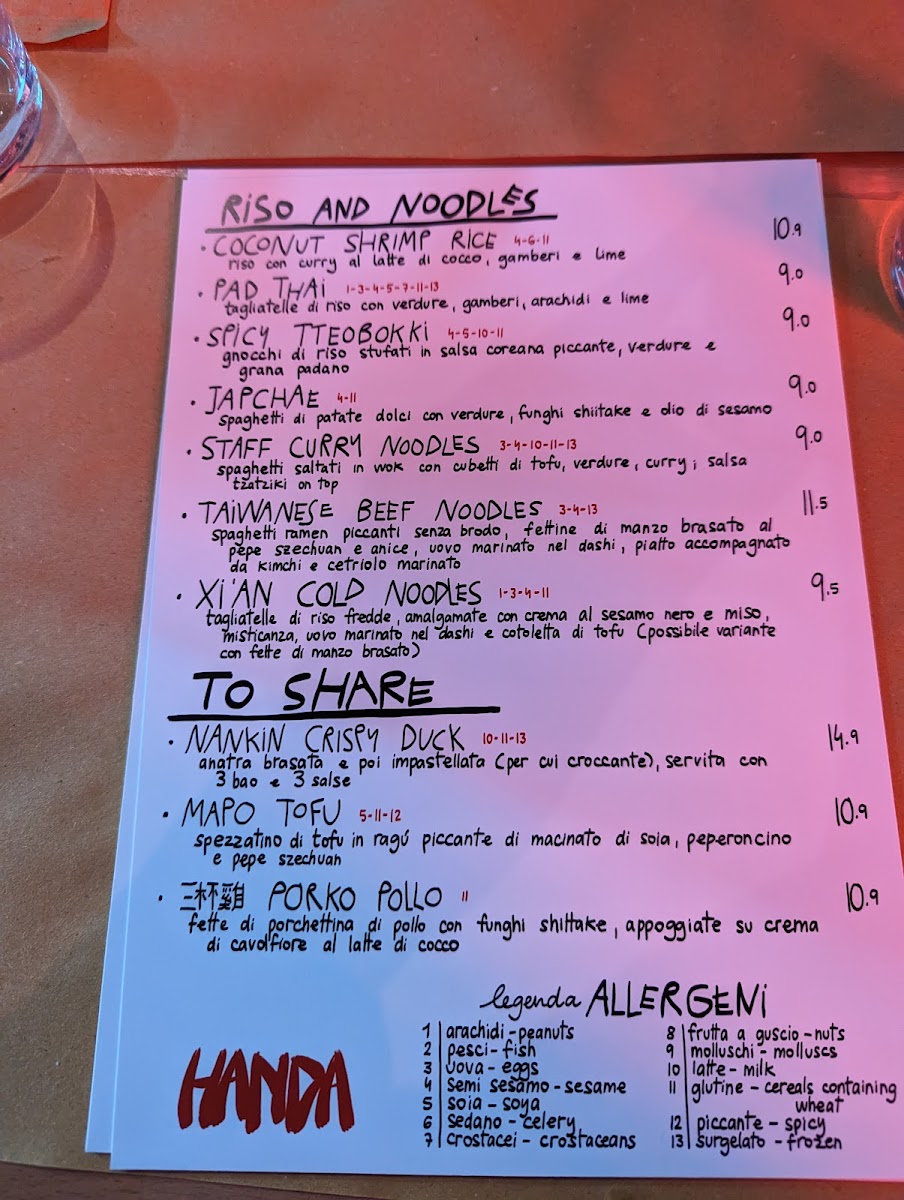 RISO AND NOODLES
• COCONUT SHRIMP RICE 4-6-11 10.9
riso con curry al latte di cocco, gamberi e lime
• PAD THAI 1-3-4-5-7-11-13 9.0
tagliatelle di riso con verdure, gamberi, arachidi e lime
• SPICY TTEOBOKKI 4-5-10-11 9.0
gnocchi di riso stufati in salsa coreana piccante, verdure e
grana padano
• JAPCHAE 4-11 9.0
spaghetti di patate dolci con verdure, funghi shiitake e olio di sesamo
• STAFF CURRY NOODLES 3-4-10-11-13 9.0
spaghetti saltati in wok con cubetti di tofu, verdure, curry; salsa
tzatziki on top
• TAIWANESE BEEF NOODLES 3-4-13 11.5
spaghetti ramen piccanti senza brodo, fettine di manzo brasato al
pepe szechuan e anice, uovo marinato nel dashi, piatto accompagnato
da kimchi e cetriolo marinato
• XI'AN COLD NOODLES 1-3-4-11 9.5
tagliatelle di riso fredde, amalgamate con crema al sesamo nero e miso,
misticanza, uovo marinato nel dashi e cotoletta di tofu (possibile variante
con fette di manzo brasato)
TO SHARE
• NANKIN CRISPY DUCK 10-11-13 14.9
anatra brasata e poi impastellata (per cui croccante), servita con
3 bao e 3 salse
• MAPO TOFU 5-11-12 10.9
spezzatino di tofu in ragú piccante di macinato di soia, peperoncino
e pepe szechuan
• 三杯雞 PORKO POLLO 11 10.9
fette di porchettina di pollo con funghi shiitake, appoggiate su crema
di cavolfiore al latte di cocco
legenda ALLERGENI
1 arachidi - peanuts
2 pesci - fish
3 uova - eggs
4 semi sesamo - sesame
5 soia - soya
6 sedano - celery
7 crostacei - crostaceans
8 frutta a guscio - nuts
9 molluschi - molluscs
10 latte - milk
11 glutine - cereals containing
wheat
12 piccante - spicy
13 surgelato - frozen
HANDA